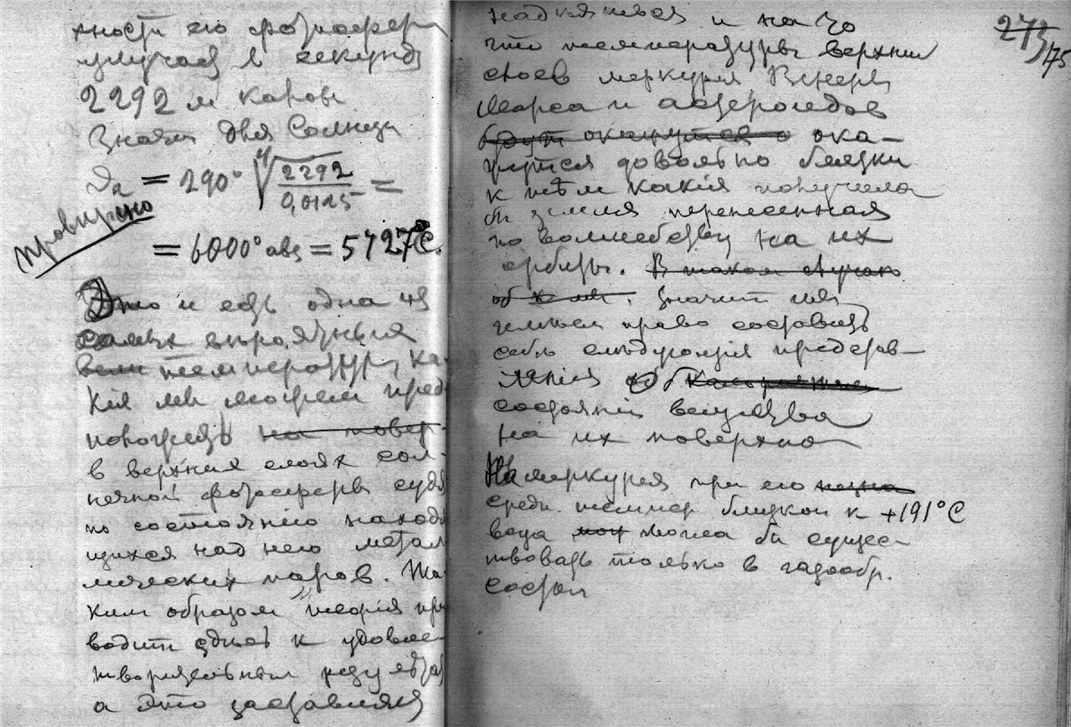 хности его фотосферы
излучает в секунду
2292 м. калорій
Значит для Солнца
= 290° ∜2292/0,0125 =
провѣрено
= 6000° абс = 5727°C.
Это и есть одна из
самых вѣроятных
температур, ка-
кія мы можем пред
положить на повер
в верхних слоях сол-
нечной фотосферы судя
по состоянію находя
щихся над нею метал
лических паров. Та-
ким образом теорія при
водит здѣсь к удовле-
творительным результа
а это заставляет
надѣяться и на то
что температуры верхних
слоев Меркурія Венеры
Марса и астероидов
будут окажутся о ока-
жутся довольно близки
к тѣм какія получила
бы земля перенесенная
по волшебству на их
орбиты. В таком случаѣ
Значит мы
имѣем право составить
себѣ слѣдующія представ-
ленія об
состояніи вещества
на их поверхно
На Меркуріи при его
средн. темпер близкой к +191°C
вода могла бы сущес-
твовать только в газообр.
состоя
273
175